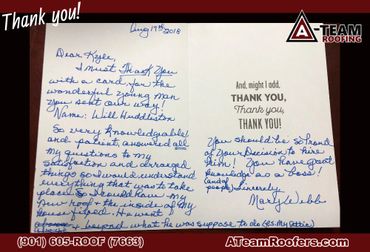 Thank you!
A-TEAM
ROOFING
Aug 19th, 2018
Dear Kyle,
I must Thank You
with a card for the
wonderful young man
you sent our way!
Name: Will Huddleston
So very knowledgeable
and patient, answered all
my questions to my
satisfaction and arranged
things so I would understand
everything that was to take
place so I could have my
new roof & the inside of my
house fixed. He went
& beyond what he was suppose to do (as My Attic)
And, might I add,
THANK YOU,
Thank you,
THANK YOU!
You should be so proud
of your decision to hire
him! You have great
knowledge as a boss!
Sincerely
Mary Webb
(901) 605-ROOF (7663)
ATeamRoofers.com